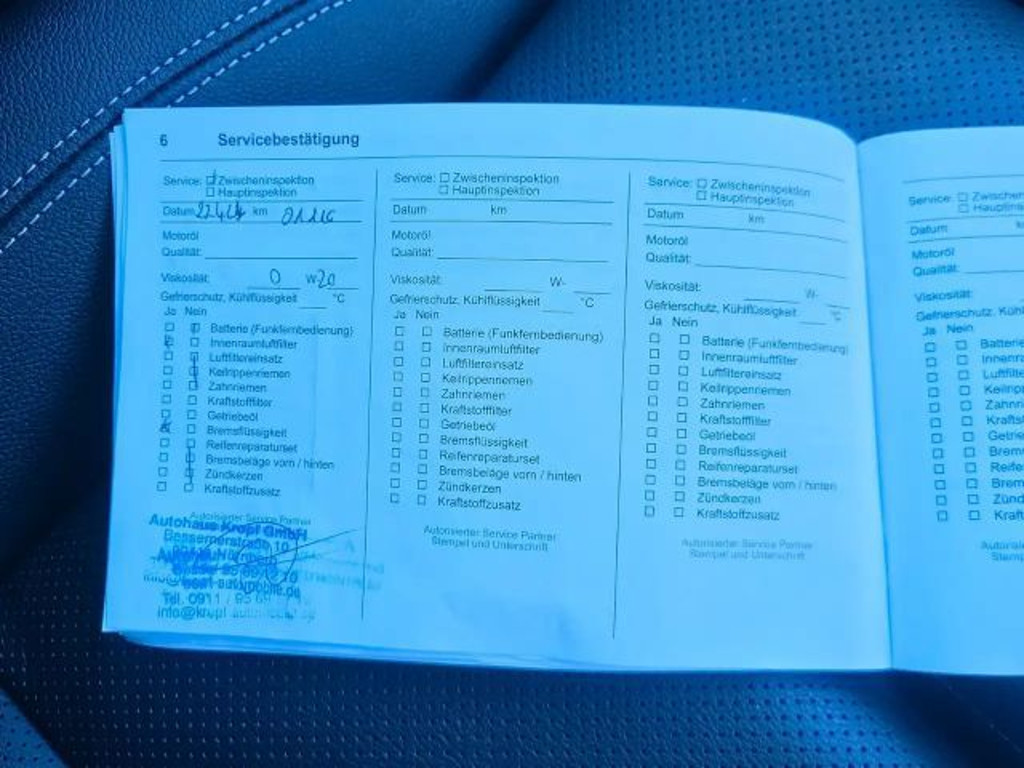 6 Servicebestätigung
Service: Zwischeninspektion
Hauptinspektion
Datum km
Motoröl
Qualität:
Viskosität: 0 W-20
Gefrierschutz, Kühlflüssigkeit °C
Ja Nein
Batterie (Funkfernbedienung)
Innenraumluftfilter
Luftfiltereinsatz
Keilrippenriemen
Zahnriemen
Kraftstofffilter
Getriebeöl
Bremsflüssigkeit
Reifenreparaturset
Bremsbeläge vorn / hinten
Zündkerzen
Kraftstoffzusatz
Autorisierter Service Partner
Autohaus Kropf GmbH
Tel. 0911 /
Service: Zwischeninspektion
Hauptinspektion
Datum km
Motoröl
Qualität:
Viskosität: W-
Gefrierschutz, Kühlflüssigkeit °C
Ja Nein
Batterie (Funkfernbedienung)
Innenraumluftfilter
Luftfiltereinsatz
Keilrippenriemen
Zahnriemen
Kraftstofffilter
Getriebeöl
Bremsflüssigkeit
Reifenreparaturset
Bremsbeläge vorn / hinten
Zündkerzen
Kraftstoffzusatz
Autorisierter Service Partner
Stempel und Unterschrift
Service: Zwischeninspektion
Hauptinspektion
Datum km
Motoröl
Qualität:
Viskosität: W-
Gefrierschutz, Kühlflüssigkeit °C
Ja Nein
Batterie (Funkfernbedienung)
Innenraumluftfilter
Luftfiltereinsatz
Keilrippenriemen
Zahnriemen
Kraftstofffilter
Getriebeöl
Bremsflüssigkeit
Reifenreparaturset
Bremsbeläge vorn / hinten
Zündkerzen
Kraftstoffzusatz
Autorisierter Service Partner
Stempel und Unterschrift
Service: Zwischenin
Hauptinsp
Datum
Motoröl
Qualität:
Viskosität:
Gefrierschutz, Kühl
Ja Nein
Batterie
Innenra
Luftfilte
Keilripp
Zahnri
Kraftst
Getrie
Brem
Reife
Brem
Zünd
Kraft